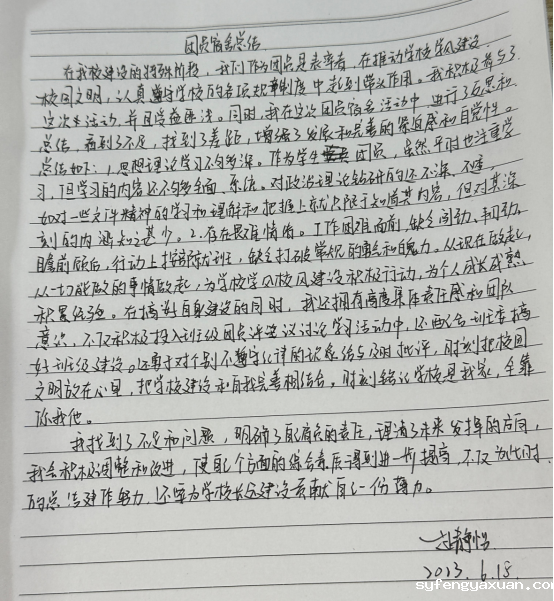 团员宿舍总结
在我校建设的特殊阶段，我们作为团员是表率者，在推动学校学风建设、
校园文明，认真遵守学校的各项规章制度中起到带头作用。我积极参与了
这次活动，并且受益匪浅。同时，我在这次团员宿舍活动中进行了反思和
总结，看到了不足，找到了差距，增强了发展和完善的紧迫感和自觉性。
总结如下：1.思想理论学习不够多深。作为学生团员，虽然平时也注重学
习，但学习的内容还不够全面、系统。对政治理论钻研的还不深、不透
如对一些文件精神的学习和理解和把握上就只限于知道其内容，但对其深
刻的内涵知之甚少。2.存在畏难情绪。工作困难面前，缺乏闯劲、韧劲。
瞻前顾后，行动上按部就班，缺乏打破常规的勇气和魄力。从现在做起，
从一切能做的事情做起，为学校学风校风建设积极行动，为个人成长成熟
积累经验。在搞好自身建设的同时，我还拥有高度集体责任感和团队
意识，不仅积极投入到班级团员评议讨论学习活动中，还配合班委搞
好班级建设。还要对个别不遵守纪律的现象给与及时批评，时刻把校园
文明放在心里，把学校建设和自我完善相结合，时刻铭记学校是我家，全靠
你我他。
我找到了不足和问题，明确了肩负的责任，理清了未来发挥的方向，
我会积极调整和改进，使自己各方面的综合素质得到进一步提高，不仅为此时
的总结建作努力，还要为学校长久建设贡献自己一份薄力。
静怡
2023.6.18
syfengyaxuan.com